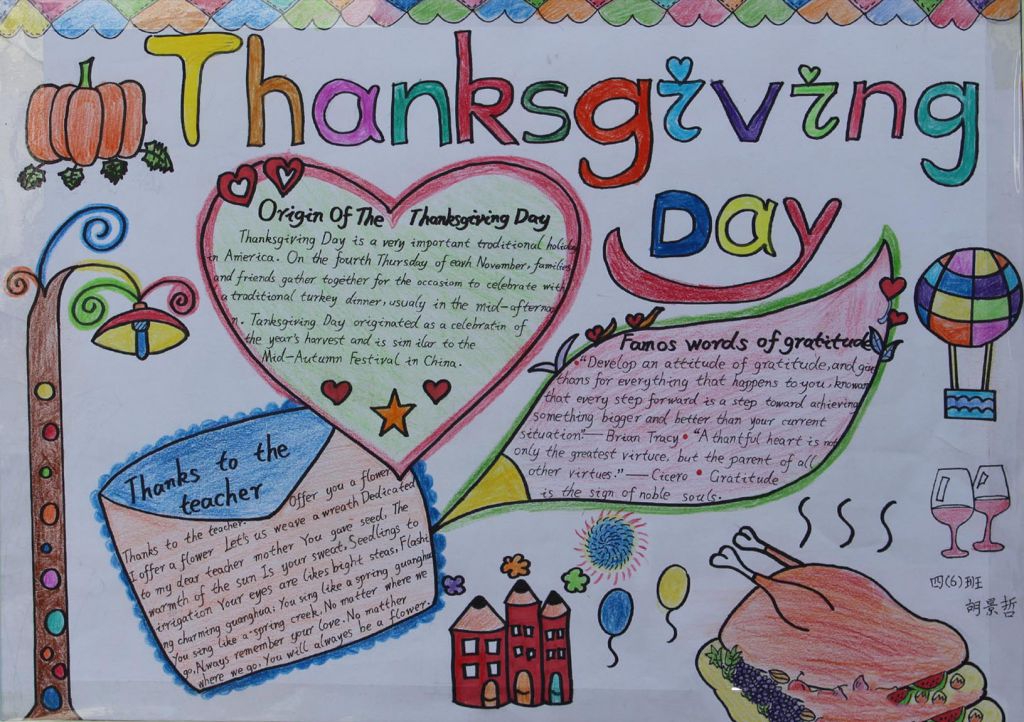 Thanksgiving
Day
Origin Of The Thanksgiving Day
Thanksgiving Day is a very important traditional holida
in America. On the fourth Thursday of eavh November, families
and friends gather together for the occasiom to celebrate with
a traditional turkey dinner, usualy in the mid-afternoo
n. Tanksgiving Day originated as a celebratin of
the year's harvest and is similar to the
Mid-Autumn Festival in China.
Famos words of gratitude
"Develop an attitude of gratitude, and give
thans for everything that happens to you, knowin
that every step forward is a step toward achieving
something bigger and better than your current
situation." — Brian Tracy • "A thantful heart is not
only the greatest virtuce, but the parent of all
other virtues." — Cicero • Gratitude
is the sign of noble souls.
Thanks to the
teacher
Thanks to the teacher. Offer you a flower
I offer a flower Let's us weave a wreath Dedicated
to my dear teacher mother You gave seed, The
warmth of the sun Is your sweat, Seedlings to
irrigation Your eyes are likes bright steas, Flashi
ng charming guanghua; You sing like a spring guanghua
You sing like a spring creek. No matter where we
go, Always remember your love. No matther
where we go, You will always be a flower.
四(6)班
胡景哲